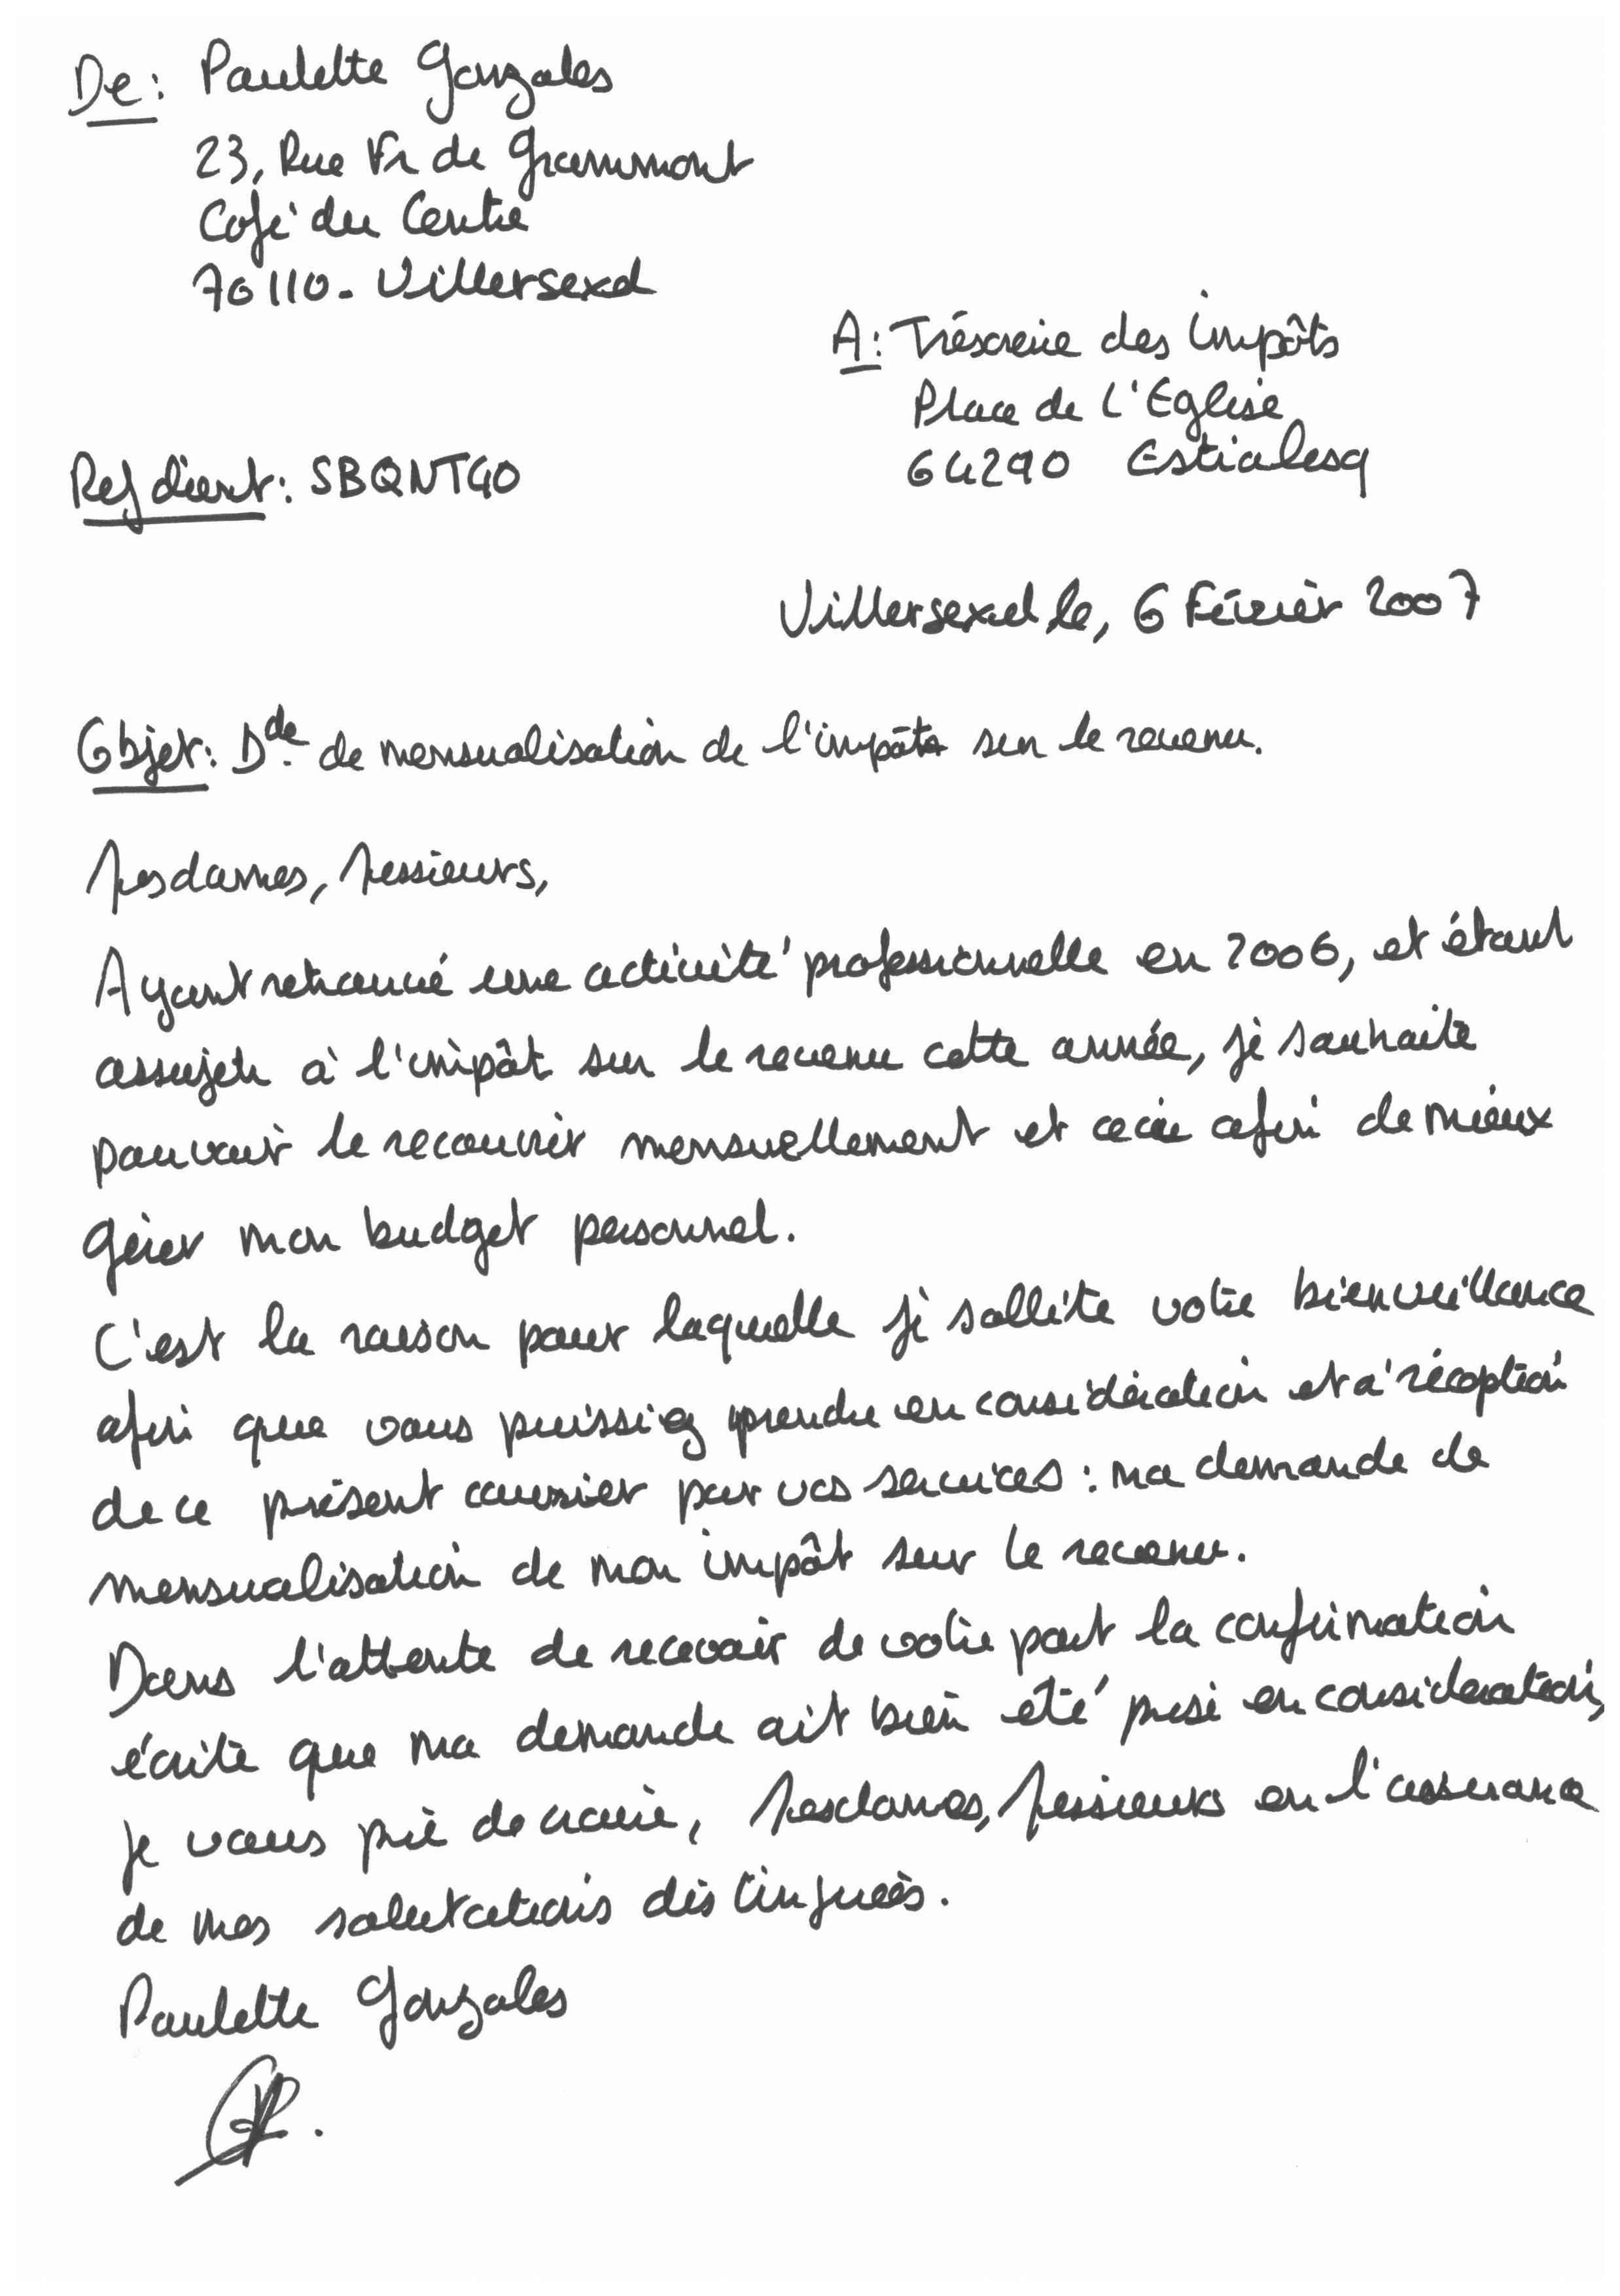 De: Paulette Gonzales
23, Rue Fr de Grammont
Café du Centre
70110 - Villersexel
A: Trésorerie des impôts
Place de L'Eglise
64290 Estialesq
Ref client: SBQNT40
Villersexel le, 6 Février 2007
Objet: Dde de mensualisation de l'impôts sur le revenu.
Mesdames, Messieurs,
Ayant retrouvé une activité professionnelle en 2006, et étant
assujeti à l'impôt sur le revenu cette année, je souhaite
pouvoir le recouvrir mensuellement et ceci afin de mieux
gérer mon budget personnel.
C'est la raison pour laquelle je sollite votre bienveillance
afin que vous puissiez prendre en considération et à réception
de ce présent courrier par vos services : ma demande de
mensualisation de mon impôt sur le revenu.
Dans l'attente de recevoir de votre part la confirmation
écrite que ma demande ait bien été prise en considération,
je vous prie de croire, Mesdames, Messieurs en l'assurance
de mes salutations distinguées.
Paulette Gonzales